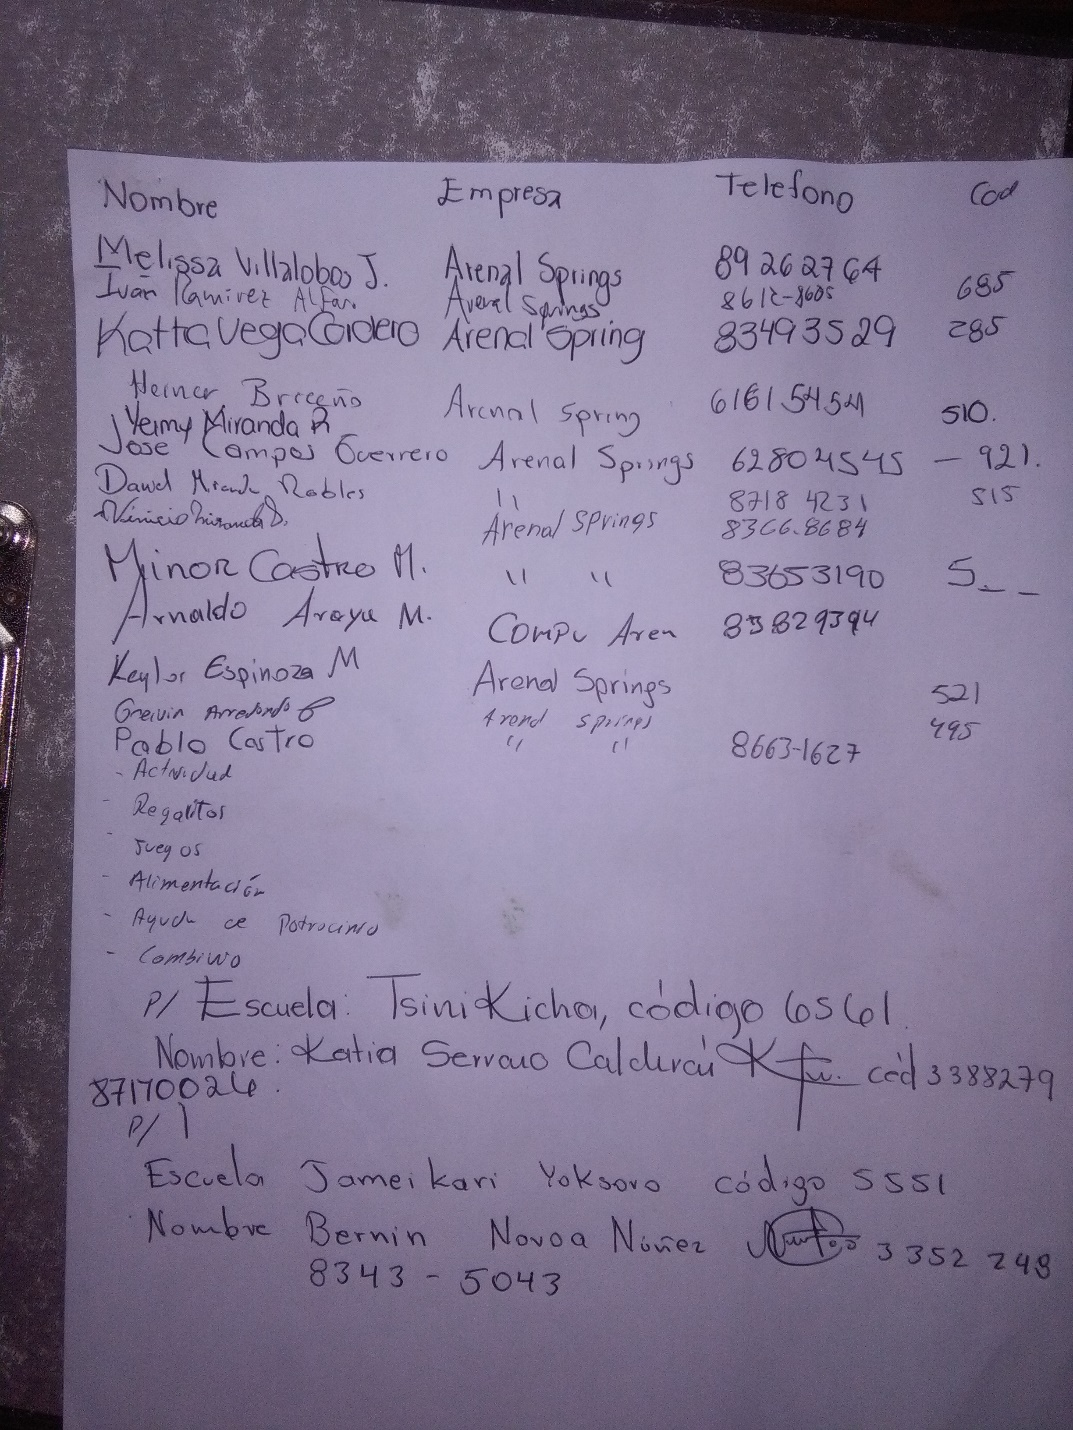 Nombre Empresa Telefono Cod
Melissa Villalobos J. Arenal Springs 89262764
Ivan Ramirez Alfar. Arenal Springs 8612-8605 685
Kattia Vega Cordero Arenal Spring 83493529 285
Heiner Briceño Arenal Spring 61615454 510.
Yeimy Miranda R
Jose Campos Guerrero Arenal Springs 62804545 - 921.
Robles " 8718 4231 515
Vinicio Miranda D. Arenal Springs 8366.8684
Minor Castro M. " " 83653190 5_ _
Arnaldo Araya M. Compu Aren 83829394
Keylor Espinoza M Arenal Springs 521
Greivin Arredondo Arenal Springs 495
Pablo Castro " " 8663-1627
- Actividad
- Regalitos
- Juegos
- Alimentación
- Ayuda de Patrocinio
- Combiwo
P/ Escuela: Tsinikicha, código 6561.
Nombre: Katia Serrano Calderón céd 3388279
87170026.
P/
Escuela Jameikari Yoksoro código 5551
Nombre Bernin Novoa Núñez 3352 248
8343 - 5043